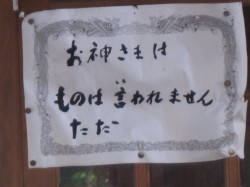 お神さまは
ものは言われません
ただ